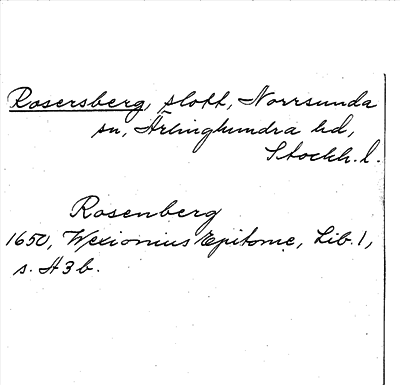 Rosersberg, slott, Norrsunda
sn, Ärlinghundra hd,
Stockh. l.
Rosenberg
1650, Wexionius Epitome, Lib. 1,
s. H3b.